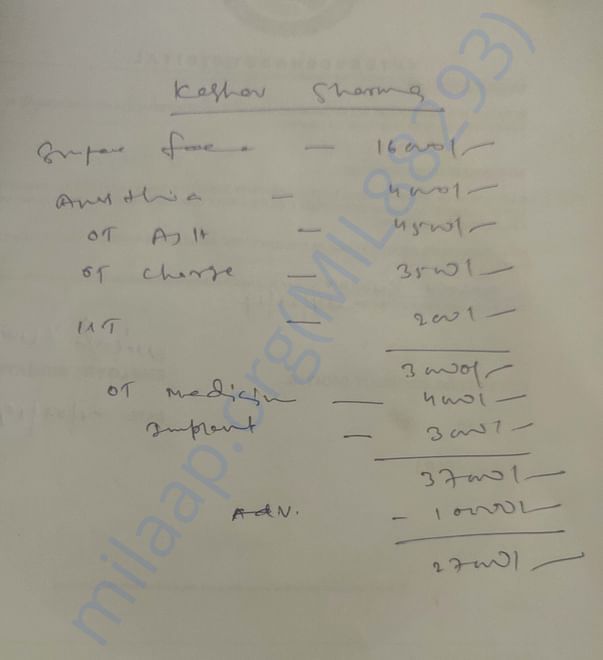 Keshav Sharma
fee — 16000/-
Ansthia — 4000/-
OT Asst — 4500/-
OT charge — 3500/-
— 2000/-
30000/-
OT medicin — 4000/-
Implant — 3000/-
37000/-
Adv. - 10000/-
27000/-
milaap.org(MIL88293)